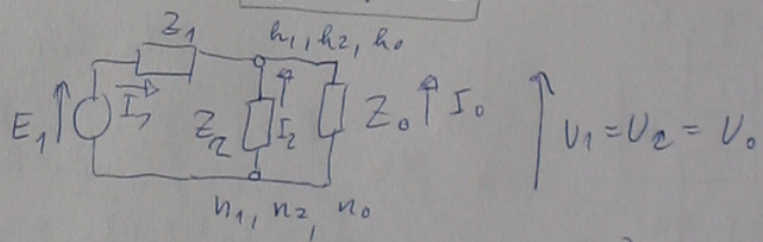 Z1 h1, h2, h0
E1 I1 Z2 I2 Z0 I0 U1 = U2 = U0
n1, n2, n0